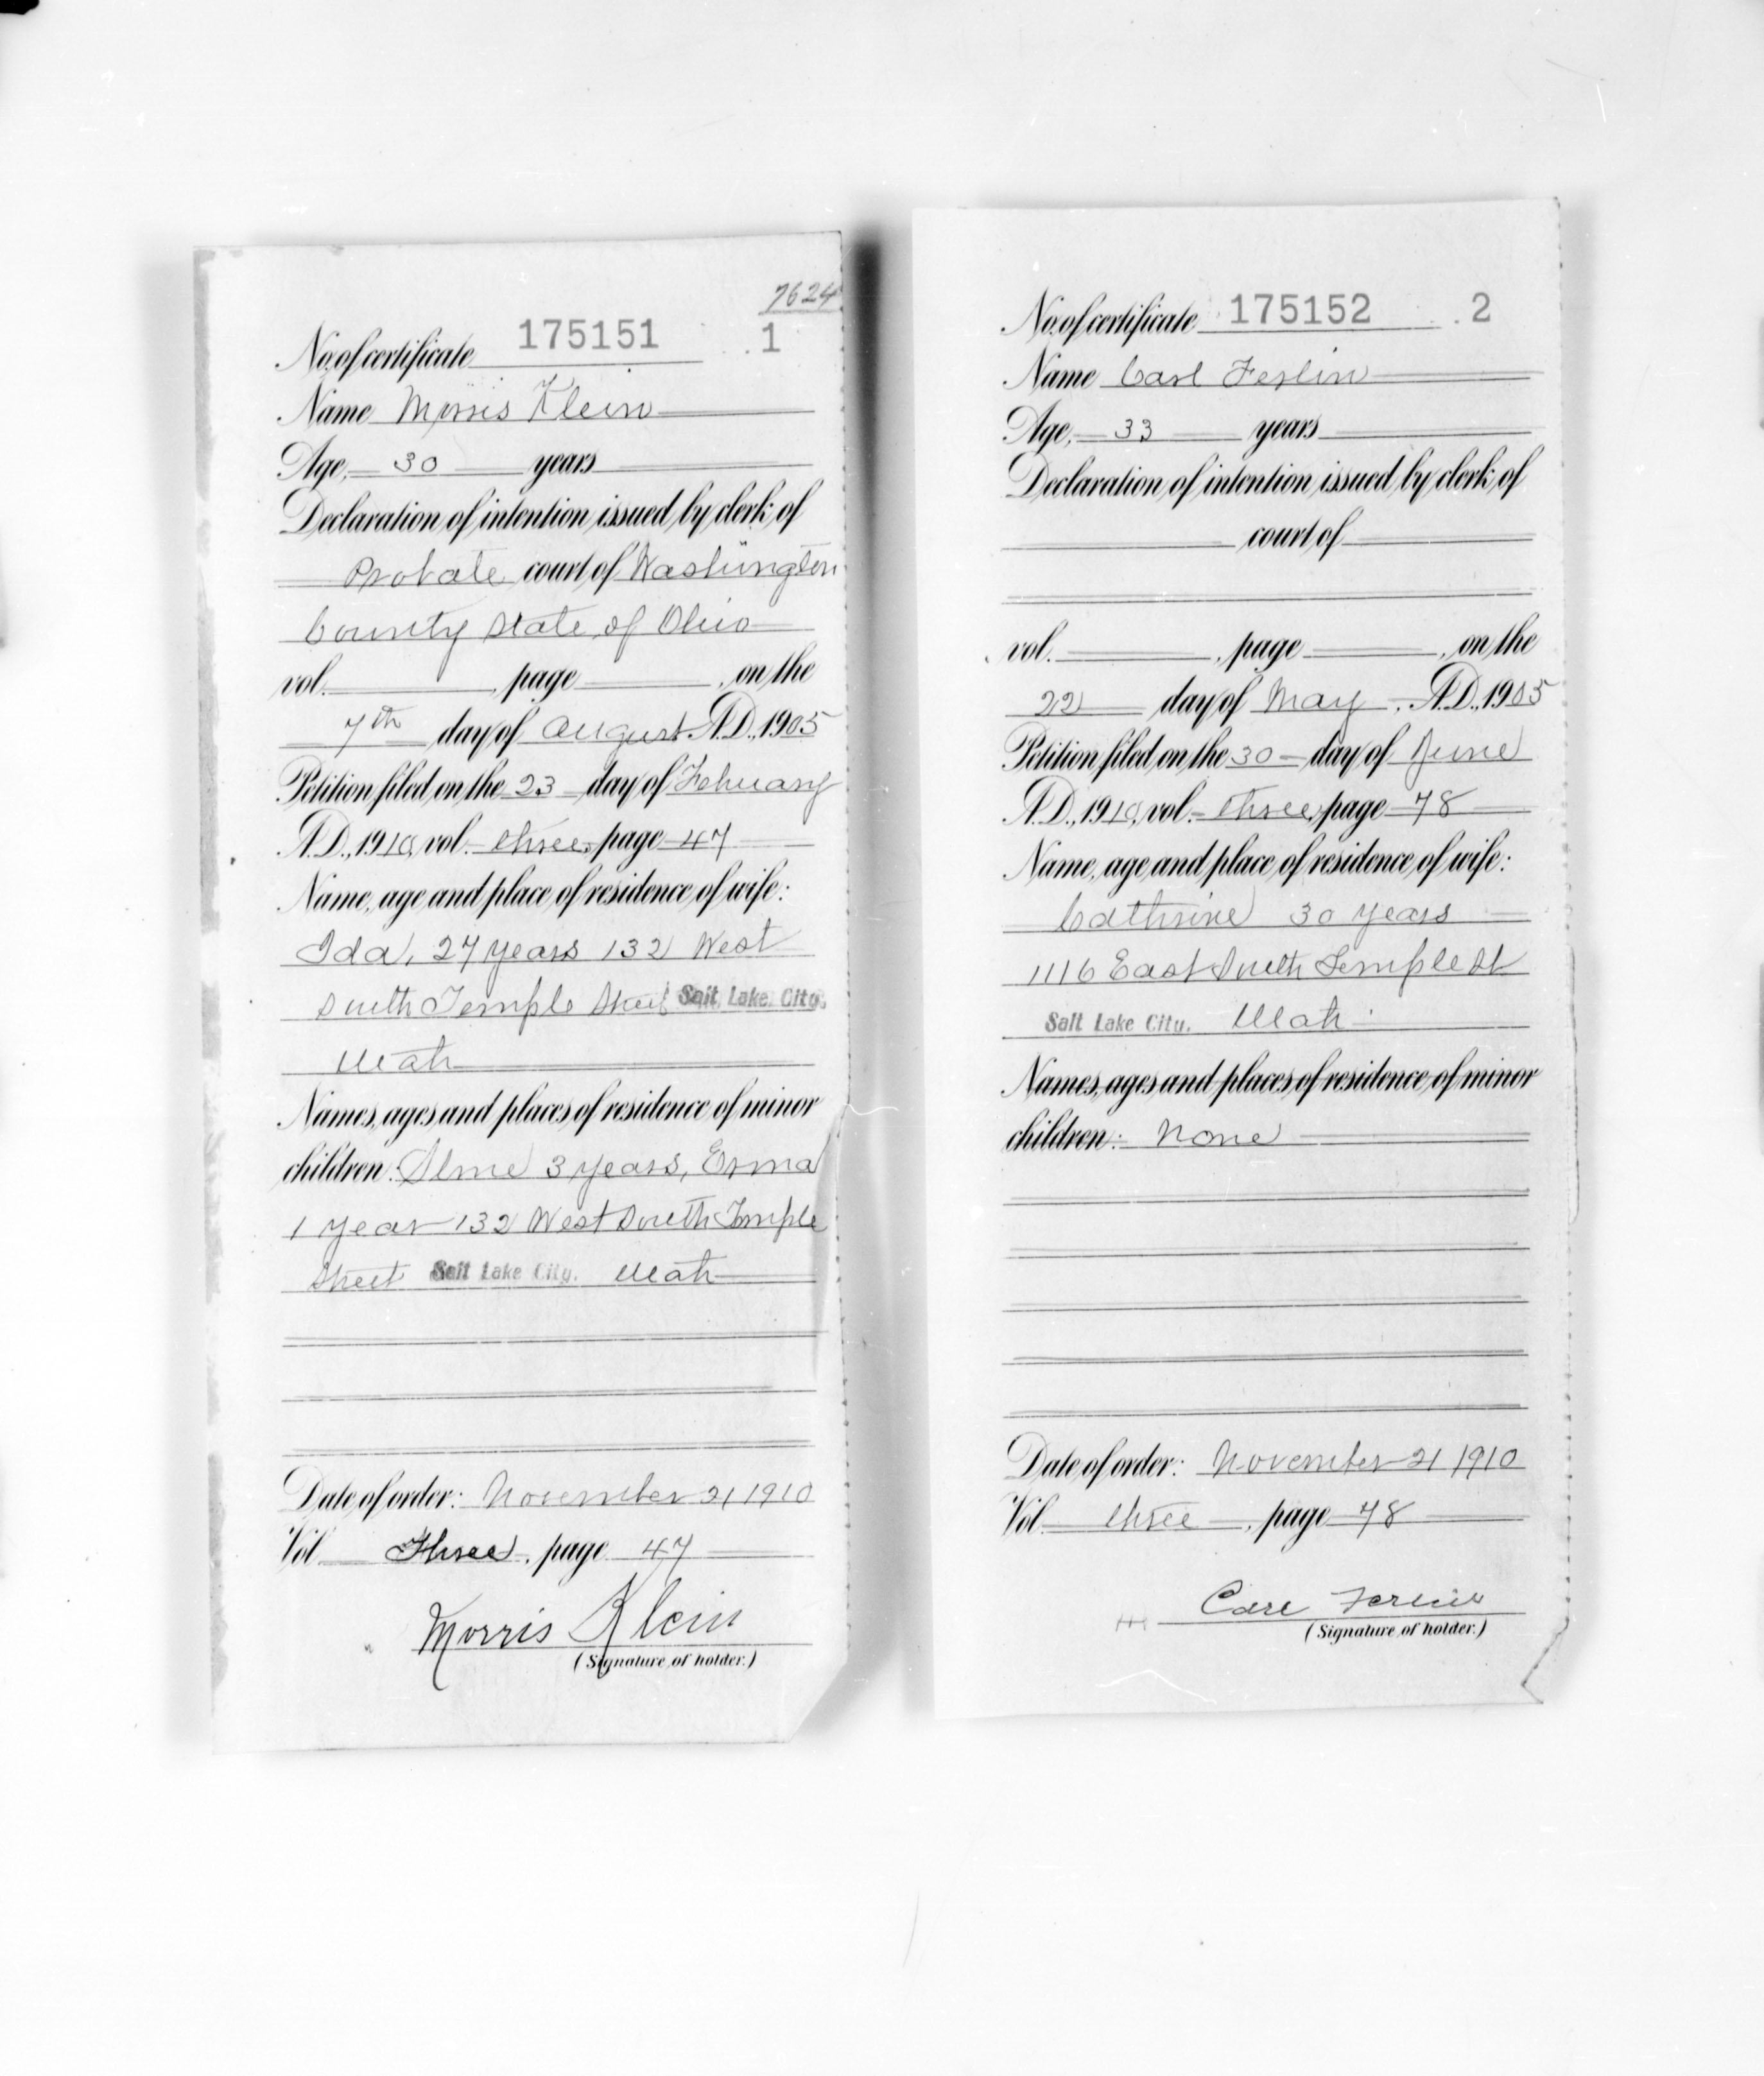 7624
No. of certificate 175151 1
Name Morris Klein
Age, 30 years
Declaration of intention issued by clerk of
Probate court of Washington
County State of Ohio
vol. , page , on the
7th day of August A.D., 1905
Petition filed on the 23 day of February
A.D., 1910, vol. three, page 47
Name, age and place of residence of wife:
Ida, 27 years 132 West
South Temple Street Salt Lake City.
Utah
Names, ages and places of residence of minor
children: 3 years, Erma
1 year 132 West South Temple
Street Salt Lake City. Utah
Date of order: November 21 1910
Vol. Three, page 47
Morris Klein
(Signature of holder.)
No. of certificate 175152 2
Name Carl Ferlin
Age, 33 years
Declaration of intention issued by clerk of
court of
vol. , page , on the
22 day of May, A.D., 1905
Petition filed on the 30 day of June
A.D., 1910, vol. three, page 78
Name, age and place of residence of wife:
Cathrine 30 years
1116 East South Temple St
Salt Lake City. Utah
Names, ages and places of residence of minor
children: None
Date of order: November 21 1910
Vol. three, page 78
Carl Ferlin
(Signature of holder.)